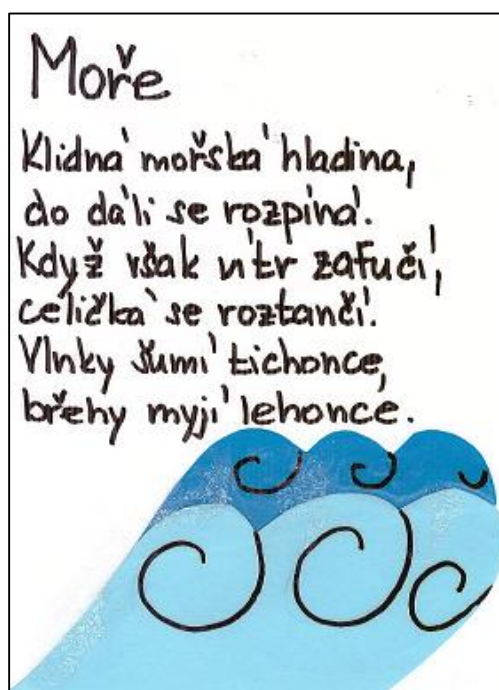 Moře
Klidná mořská hladina,
do dáli se rozpíná.
Když však vítr zafučí,
celičká se roztančí.
Vlnky šumí tichonce,
břehy myjí lehonce.